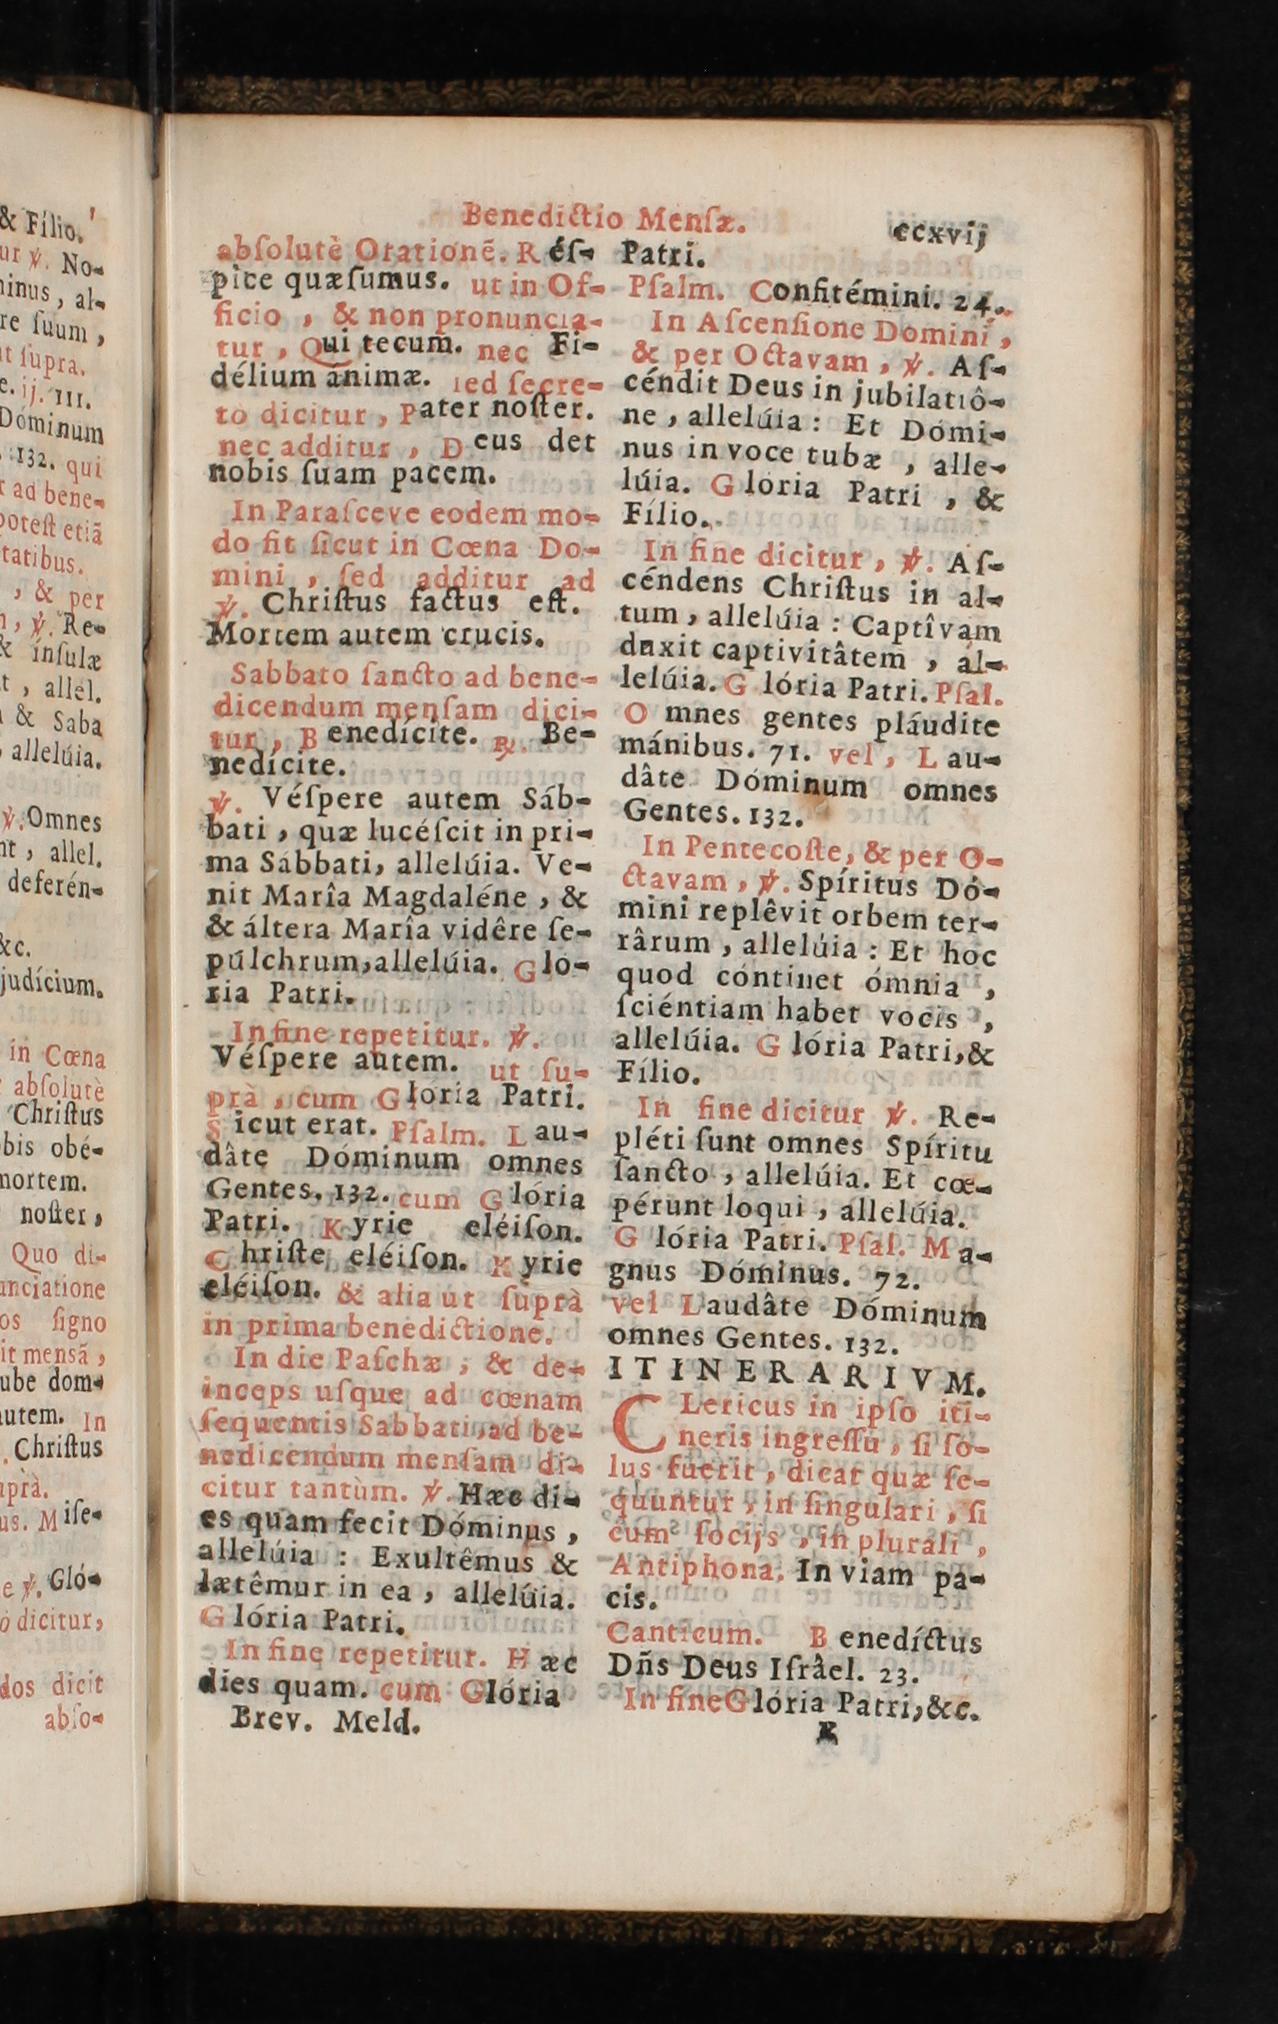 & Fílio.
ur ℣. No-
minus, al-
re ſuum,
ut ſupra.
e. ij. III.
Dóminum
132. qui
r ad bene-
poteſt etiã
tatibus.
, & per
, ℣. Re-
& ínſulæ
t, allel.
& Saba
allelúia.
℣. Omnes
nt, allel.
deferén-
&c.
judícium.
in Cœna
abſolutè
Chriſtus
bis obé-
mortem.
noſter,
Quo di-
unciatione
os ſigno
it mensã,
ube dom-
autem. In
Chriſtus
uprà.
us. Miſe-
e ℣. Gló-
dicitur,
dos dicit
abſo-
Benedictio Menſæ. ccxvij
abſolutè Orationẽ. Réſ-
pice quæſumus. ut in Of-
ficio, & non pronuncia-
tur, Qui tecum. nec Fi-
délium animæ. ſed ſecre-
to dicitur, Pater noſter.
nec additur, Deus det
nobis ſuam pacem.
In Paraſceve eodem mo-
do fit ſicut in Cœna Do-
mini, ſed additur ad
℣. Chriſtus factus eſt.
Mortem autem crucis.
Sabbato ſancto ad bene-
dicendum menſam dici-
tur, Benedícite. ℟. Be-
nedícite.
℣. Véſpere autem Sáb-
bati, quæ lucéſcit in pri-
ma Sábbati, allelúia. Ve-
nit Marîa Magdaléne, &
& áltera Marîa vidêre ſe-
púlchrum, allelúia. Gló-
ria Patri.
In fine repetitur. ℣.
Véſpere autem. ut ſu-
prà, cum Glória Patri.
Sicut erat. Pſalm. Lau-
dâte Dóminum omnes
Gentes. 132. cum Glória
Patri. Kyrie eléiſon.
Chriſte eléiſon. Kyrie
eléiſon. & alia ut ſuprà
in prima benedictione.
In die Paſchæ, & de-
inceps uſque ad cœnam
ſequentis Sabbati, ad be-
nedicendum menſam di-
citur tantùm. ℣. Hæc di-
es quam fecit Dóminus,
allelúia : Exultêmus &
lætêmur in ea, allelúia.
Glória Patri.
In fine repetitur. Hæc
dies quam. cum Glória
Brev. Meld.
Patri.
Pſalm. Confitémini. 24.
In Aſcenſione Domini,
& per Octavam, ℣. Aſ-
céndit Deus in jubilatiô-
ne, allelúia : Et Dómi-
nus in voce tubæ, alle-
lúia. Glória Patri, &
Fílio.
In fine dicitur, ℣. Aſ-
céndens Chriſtus in al-
tum, allelúia : Captîvam
duxit captivitâtem, al-
lelúia. Glória Patri. Pſal.
Omnes gentes pláudite
mánibus. 71. vel, Lau-
dâte Dóminum omnes
Gentes. 132.
In Pentecoſte, & per O-
ctavam, ℣. Spíritus Dó-
mini replêvit orbem ter-
rârum, allelúia : Et hoc
quod cóntinet ómnia,
ſciéntiam habet vocis,
allelúia. Glória Patri, &
Fílio.
In fine dicitur ℣. Re-
pléti ſunt omnes Spíritu
ſancto, allelúia. Et cœ-
pérunt loqui, allelúia.
Glória Patri. Pſal. Ma-
gnus Dóminus. 72.
vel Laudâte Dóminum
omnes Gentes. 132.
ITINERARIVM.
CLericus in ipſo iti-
neris ingreſſu, ſi ſo-
lus fuerit, dicat quæ ſe-
quuntur, in ſingulari, ſi
cum ſocijs, in plurali,
Antiphona. In viam pa-
cis.
Canticum. Benedíctus
Dñs Deus Iſrâel. 23.
In fine Glória Patri, &c.